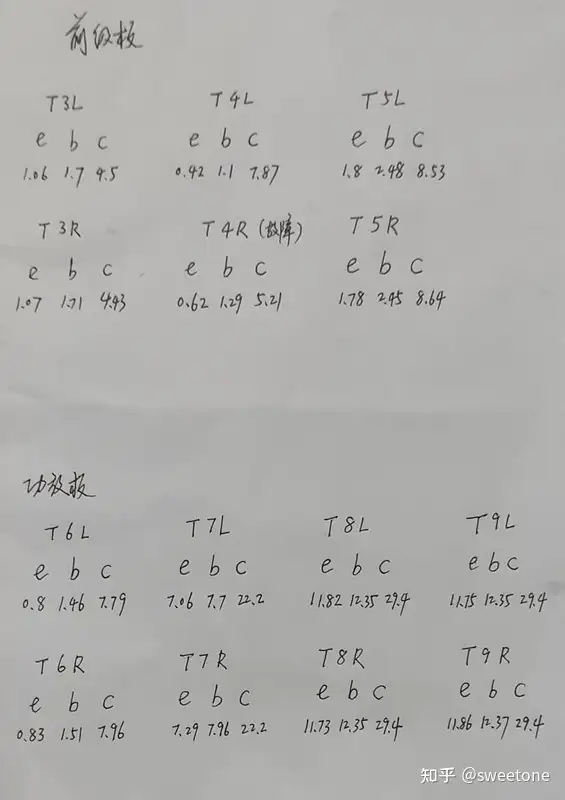 前级板
T3L T4L T5L
e b c e b c e b c
1.06 1.7 4.5 0.42 1.1 7.87 1.8 2.48 8.53
T3R T4R(故障) T5R
e b c e b c e b c
1.07 1.71 4.43 0.62 1.29 5.21 1.78 2.45 8.64
功放板
T6L T7L T8L T9L
e b c e b c e b c e b c
0.8 1.46 7.79 7.06 7.7 22.2 11.82 12.35 29.4 11.75 12.35 29.4
T6R T7R T8R T9R
e b c e b c e b c e b c
0.83 1.51 7.96 7.29 7.96 22.2 11.73 12.35 29.4 11.86 12.37 29.4
知乎 @sweetone